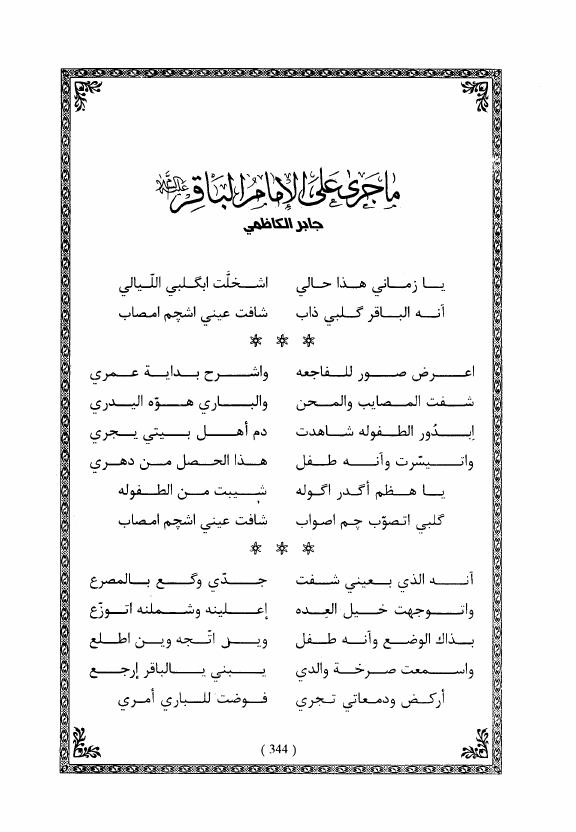 ما جرى على الإمام الباقر عليه السلام
جابر الكاظمي
يا زماني هذا حالي اشخلّت ابگلبي الليالي
آنه الباقر گلبي ذاب شافت عيني اشچم امصاب
* * *
اعرض صور للفاجعه واشرح بداية عمري
شفت المصايب والمحن والباري هوّه اليدري
إبدُور الطفوله شاهدت دم أهل بيتي يجري
واتيسّرت وآنه طفل هذا الحصل من دهري
يا هظم أگدر اگوله شيبت من الطفوله
گلبي اتصوّب چم اصواب شافت عيني اشچم امصاب
* * *
آنه الذي بعيني شفت جدّي وگع بالمصرع
واتوجهت خيل العده إعلينه وشملنه اتوزّع
بذاك الوضع وآنه طفل وين اتّجه وين اطلع
واسمعت صرخة والدي يبني يالباقر إرجع
أركض ودمعاتي تجري فوضت للباري أمري
( 344 )